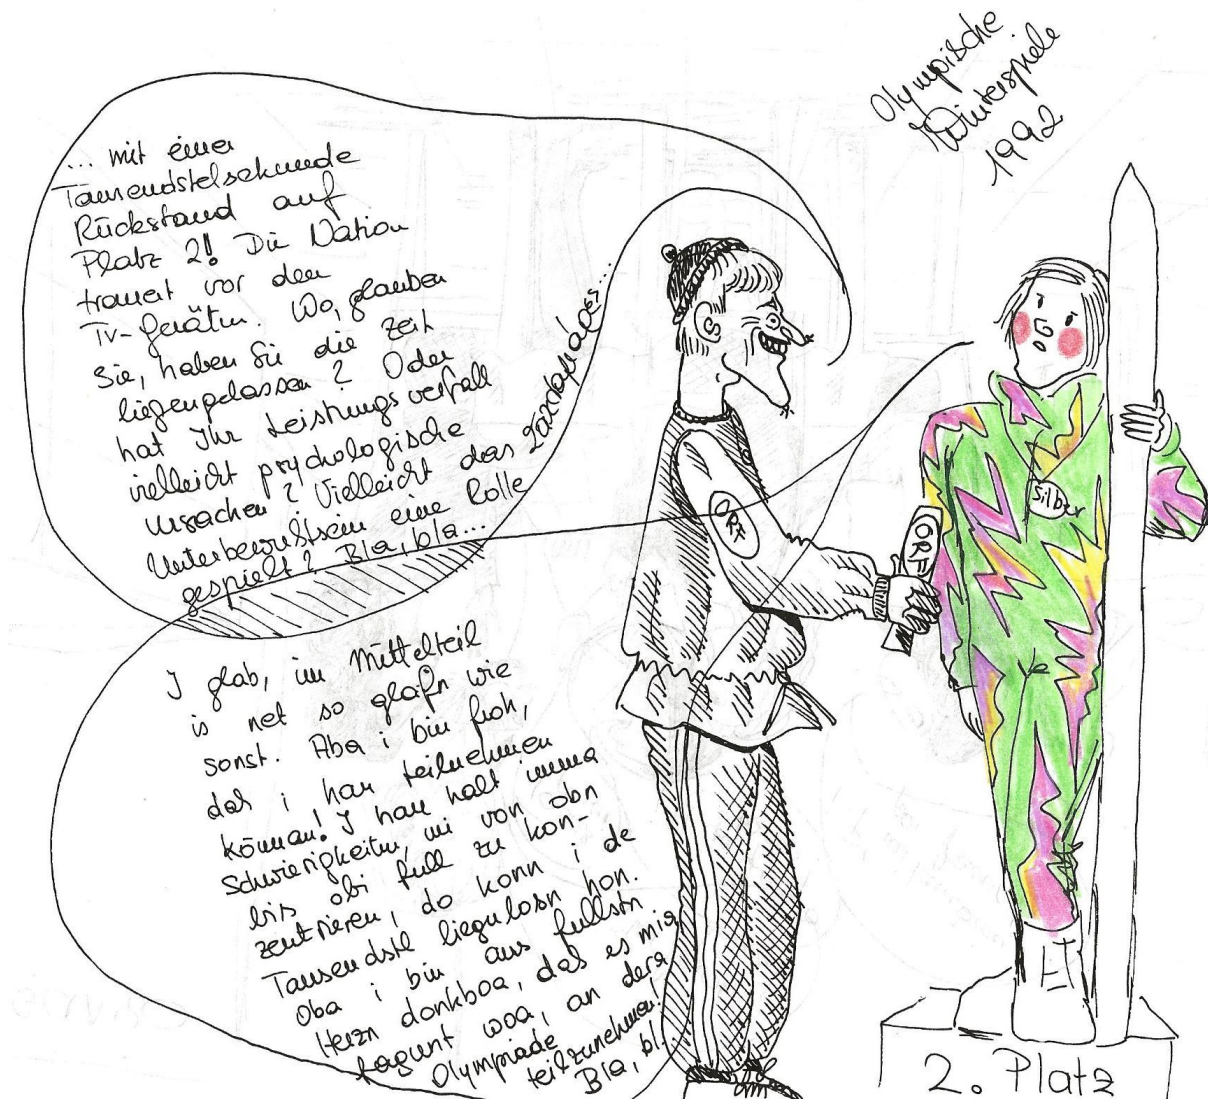 Olympische
Winterspiele
1992
... mit einer
Tausendstelsekunde
Rückstand auf
Platz 2! Die Nation
trauert vor den
TV-Geräten. Wo, glauben
Sie, haben Sie die Zeit
liegengelassen? Oder
hat Ihr Leistungsverfall
vielleicht psychologische
Ursachen? Vielleicht das
Unterbewußtsein eine Rolle
gespielt? Bla, bla...
I glab, im Mittelteil
is net so glafn wie
sonst. Aba i bin froh,
daß i hau teilnehmen
können! I hau halt imma
Schwierigkeiten, mi von obn
bis obi full zu kon-
zentrieren, do konn i de
Tausendstl liegnlosn hon.
Oba i bin aus fullstn
Herzn donkboa, daß es mia
fagunt woa, an dera
Olympiade
teilzunehmen!
Bla, bl.
ORF
ORF
Silber
2. Platz